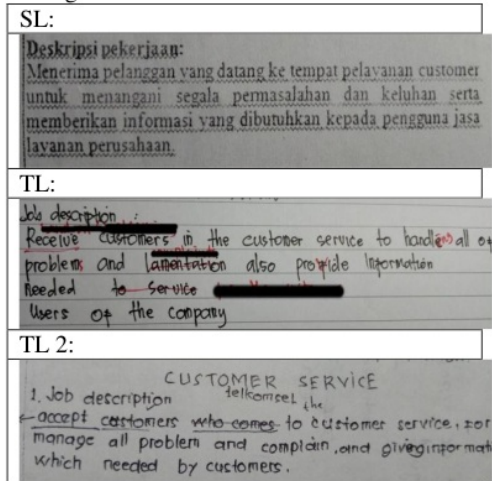 SL:
Deskripsi pekerjaan:
Menerima pelanggan yang datang ke tempat pelayanan customer
untuk menangani segala permasalahan dan keluhan serta
memberikan informasi yang dibutuhkan kepada pengguna jasa
layanan perusahaan.
TL:
Job description :
Receive customers in the customer service to handle all of
problems and lamentation also provide Information
needed to service
Users of the company
TL 2:
CUSTOMER SERVICE
1. Job description telkomsel the
accept customers who comes to customer service, for
manage all problem and complain, and giving informat
which needed by customers.